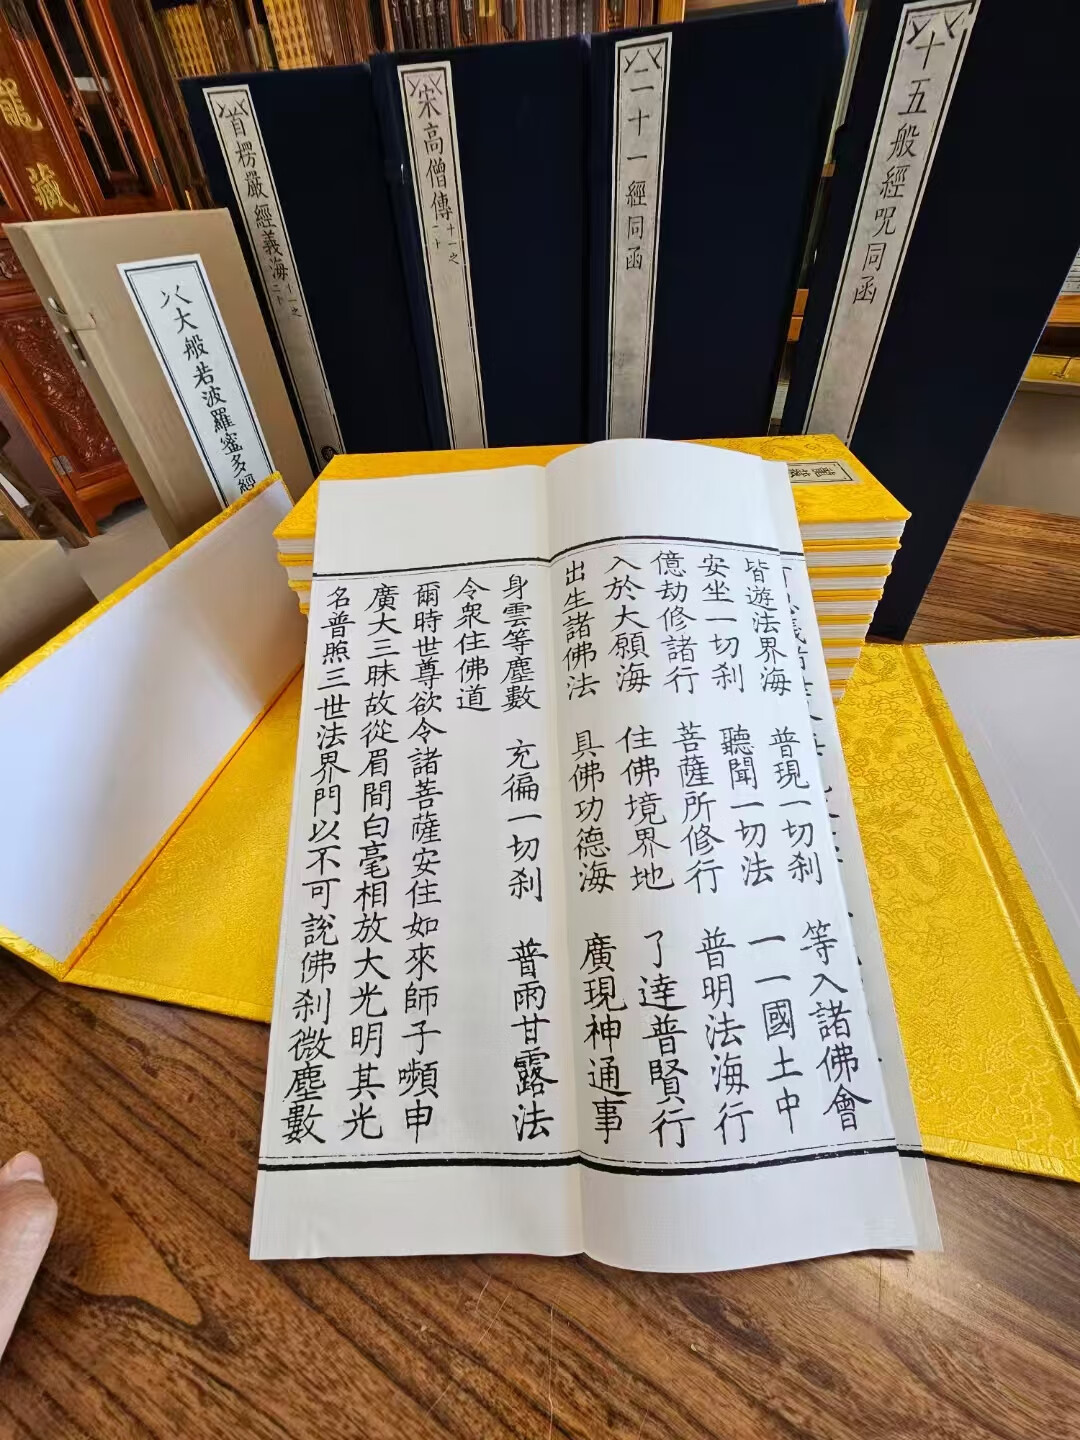 龍藏
大般若波羅蜜多經
首楞嚴經義海
十一之
二十
宋高僧傳
十一之
二十
二十一經同函
十五般經呪同函
龍藏
皆遊法界海 普現一切刹 等入諸佛會
安坐一切刹 聽聞一切法 一一國土中
億劫修諸行 菩薩所修行 普明法海行
入於大願海 住佛境界地 了達普賢行
出生諸佛法 具佛功德海 廣現神通事
身雲等塵數 充徧一切刹 普雨甘露法
令衆住佛道
爾時世尊欲令諸菩薩安住如來師子嚬申
廣大三昧故從眉間白毫相放大光明其光
名普照三世法界門以不可說佛刹微塵數